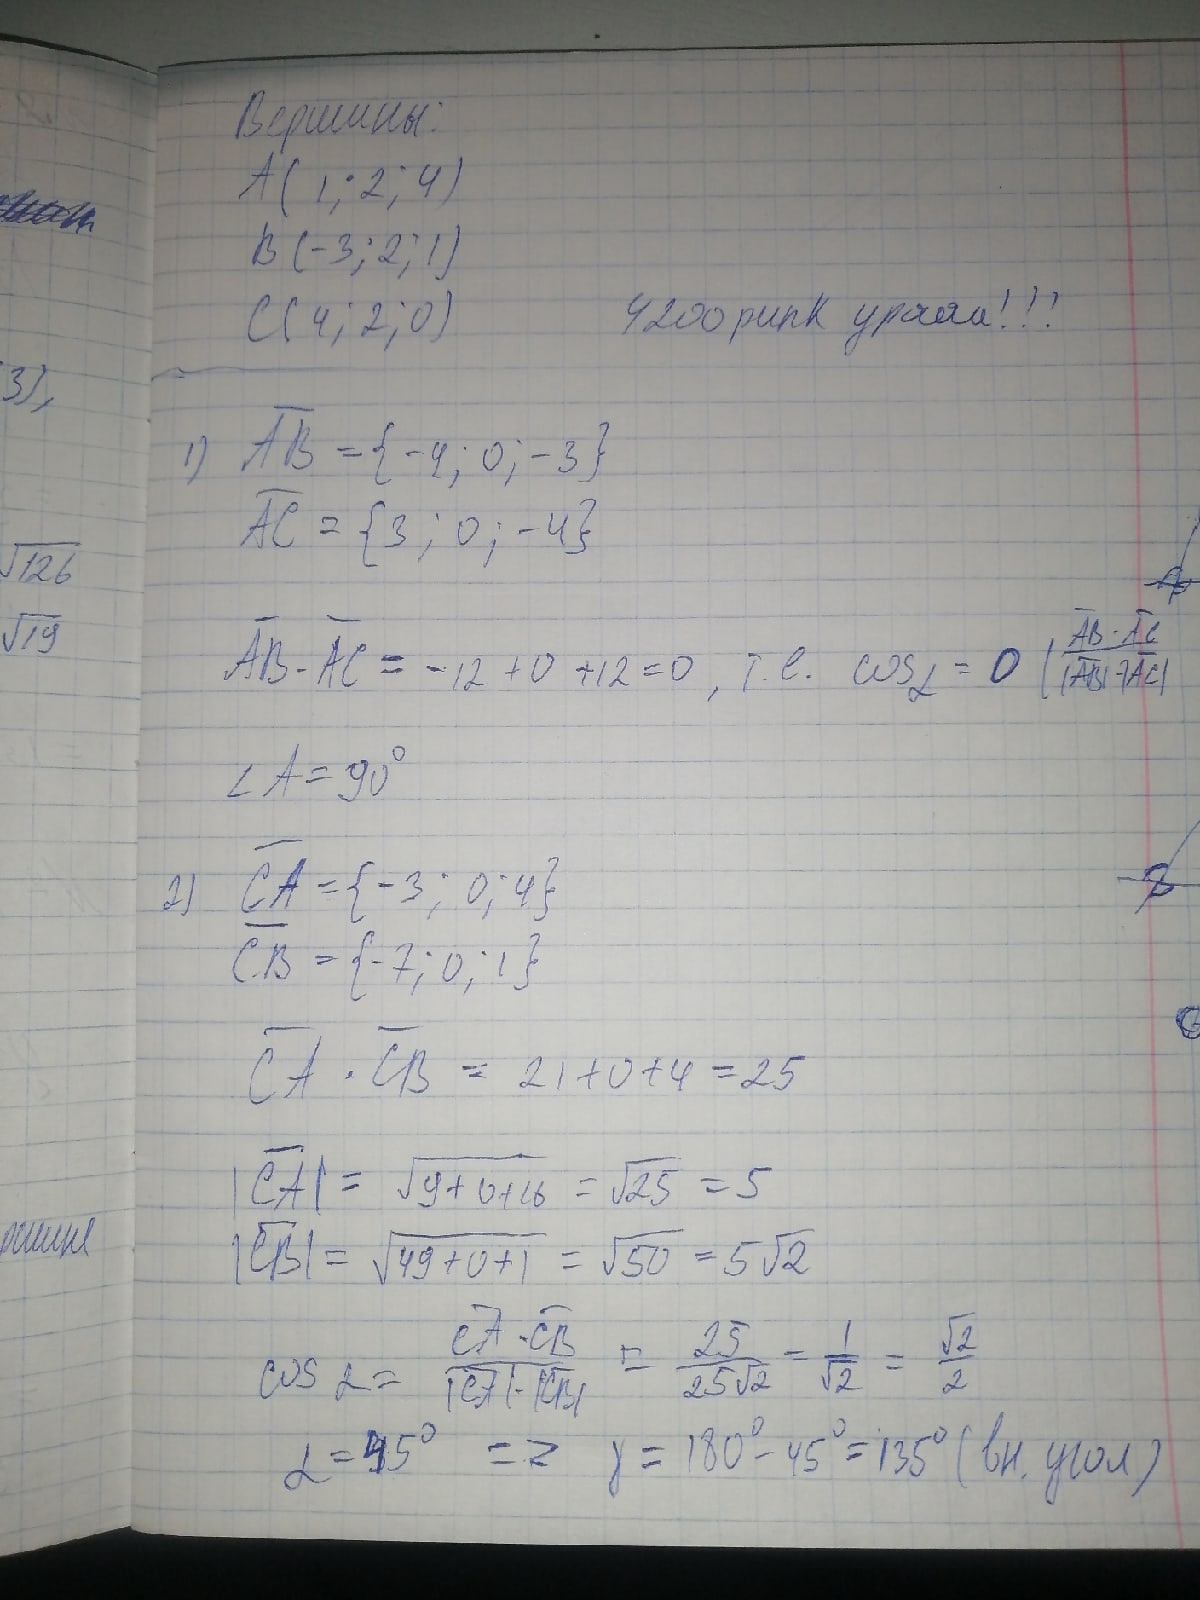 Вершины:
A(1; 2; 4)
B(-3; 2; 1)
C(4; 2; 0)
4200 рипк урааа!!!
3},
1) AB = {-4; 0; -3}
AC = {3; 0; -4}
√126
√19
AB · AC = -12 + 0 + 12 = 0, т.е. cos α = 0 (AB · AC / |AB| · |AC|
∠A = 90°
2) CA = {-3; 0; 4}
CB = {-7; 0; 1}
CA · CB = 21 + 0 + 4 = 25
|CA| = √9+0+16 = √25 = 5
|CB| = √49+0+1 = √50 = 5√2
cos α = CA · CB / |CA| · |CB| = 25 / 25√2 = 1 / √2 = √2 / 2
α = 45° => γ = 180° - 45° = 135° (вн. угол)